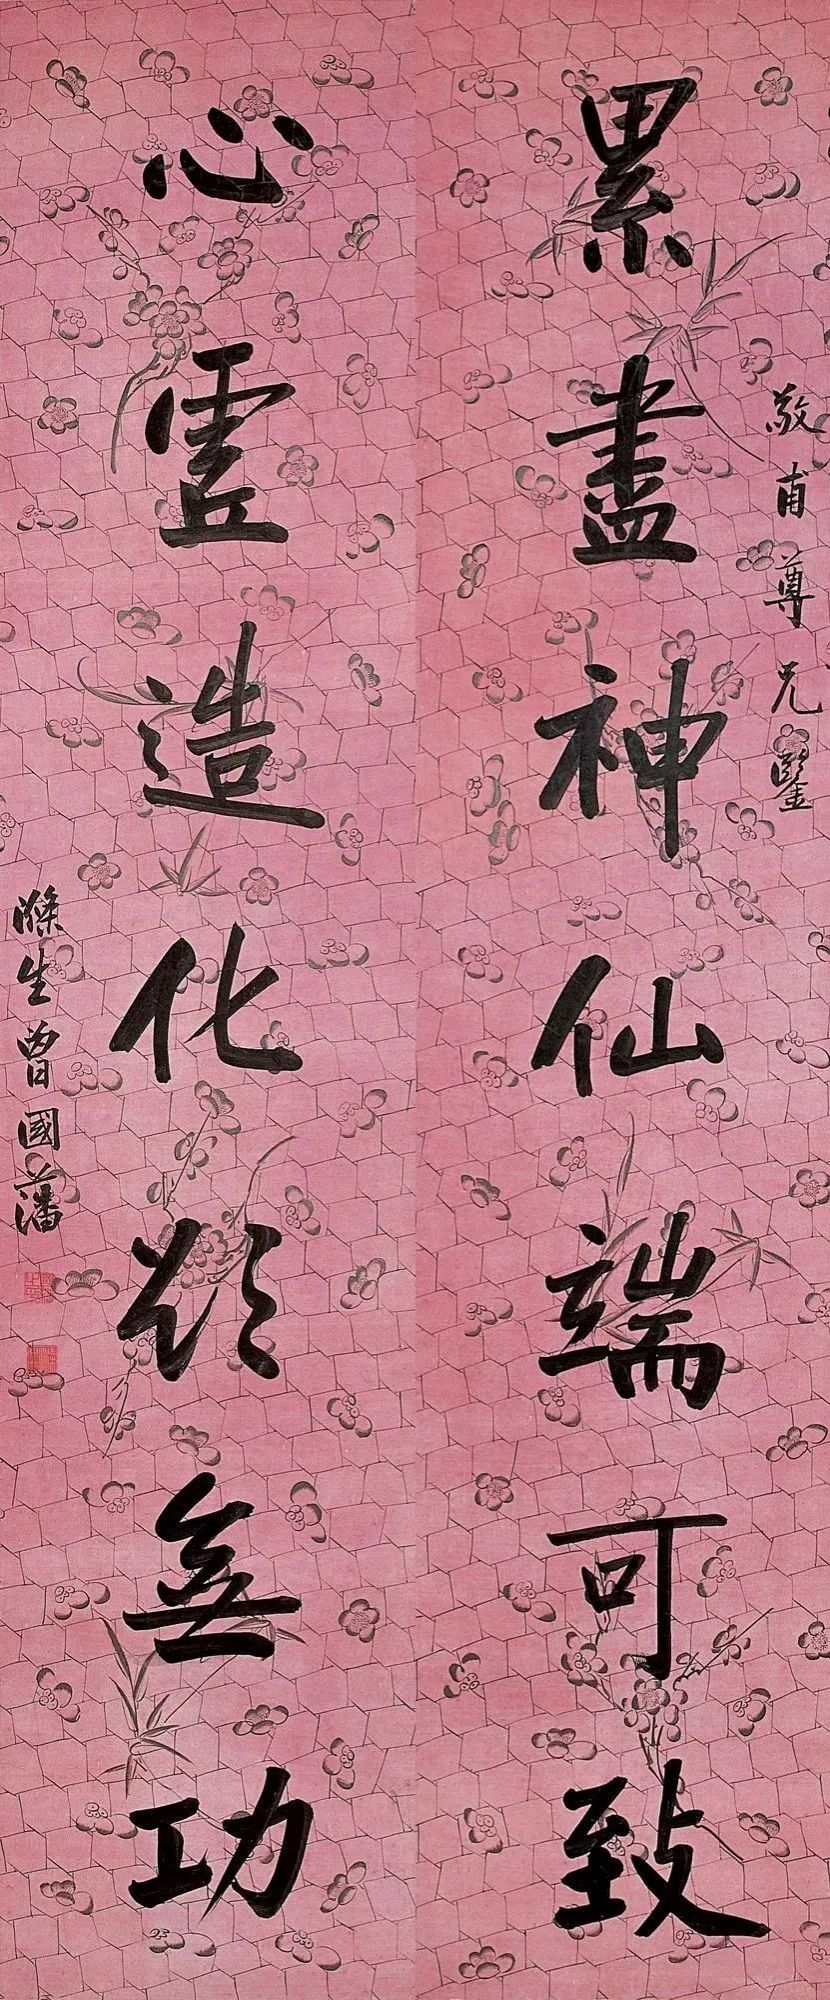 敬甫尊兄鑒
累盡神仙端可致
心虛造化欲無功
滌生曾國藩